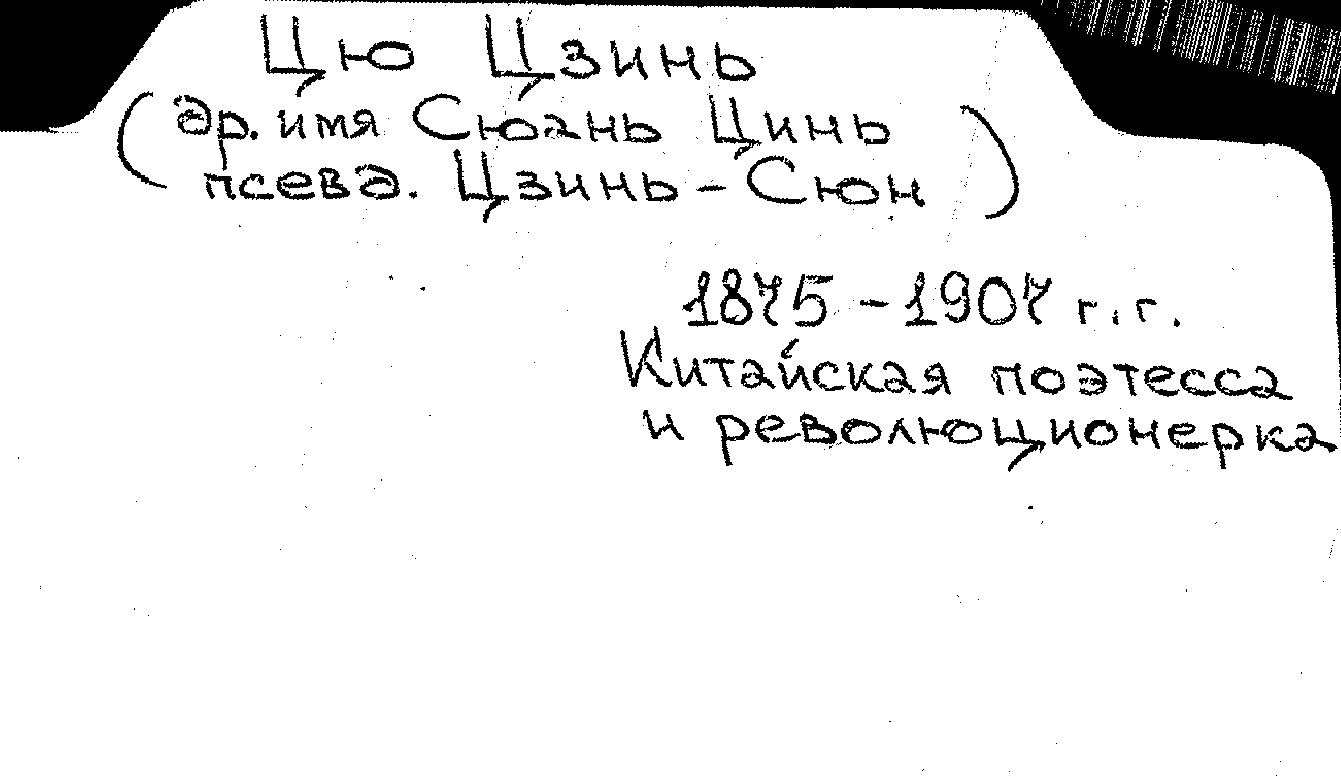 Цю Цзинь
(др. имя Сюань Цинь
псевд. Цзинь-Сюн)
1875-1907 г.г.
Китайская поэтесса
и революционерка